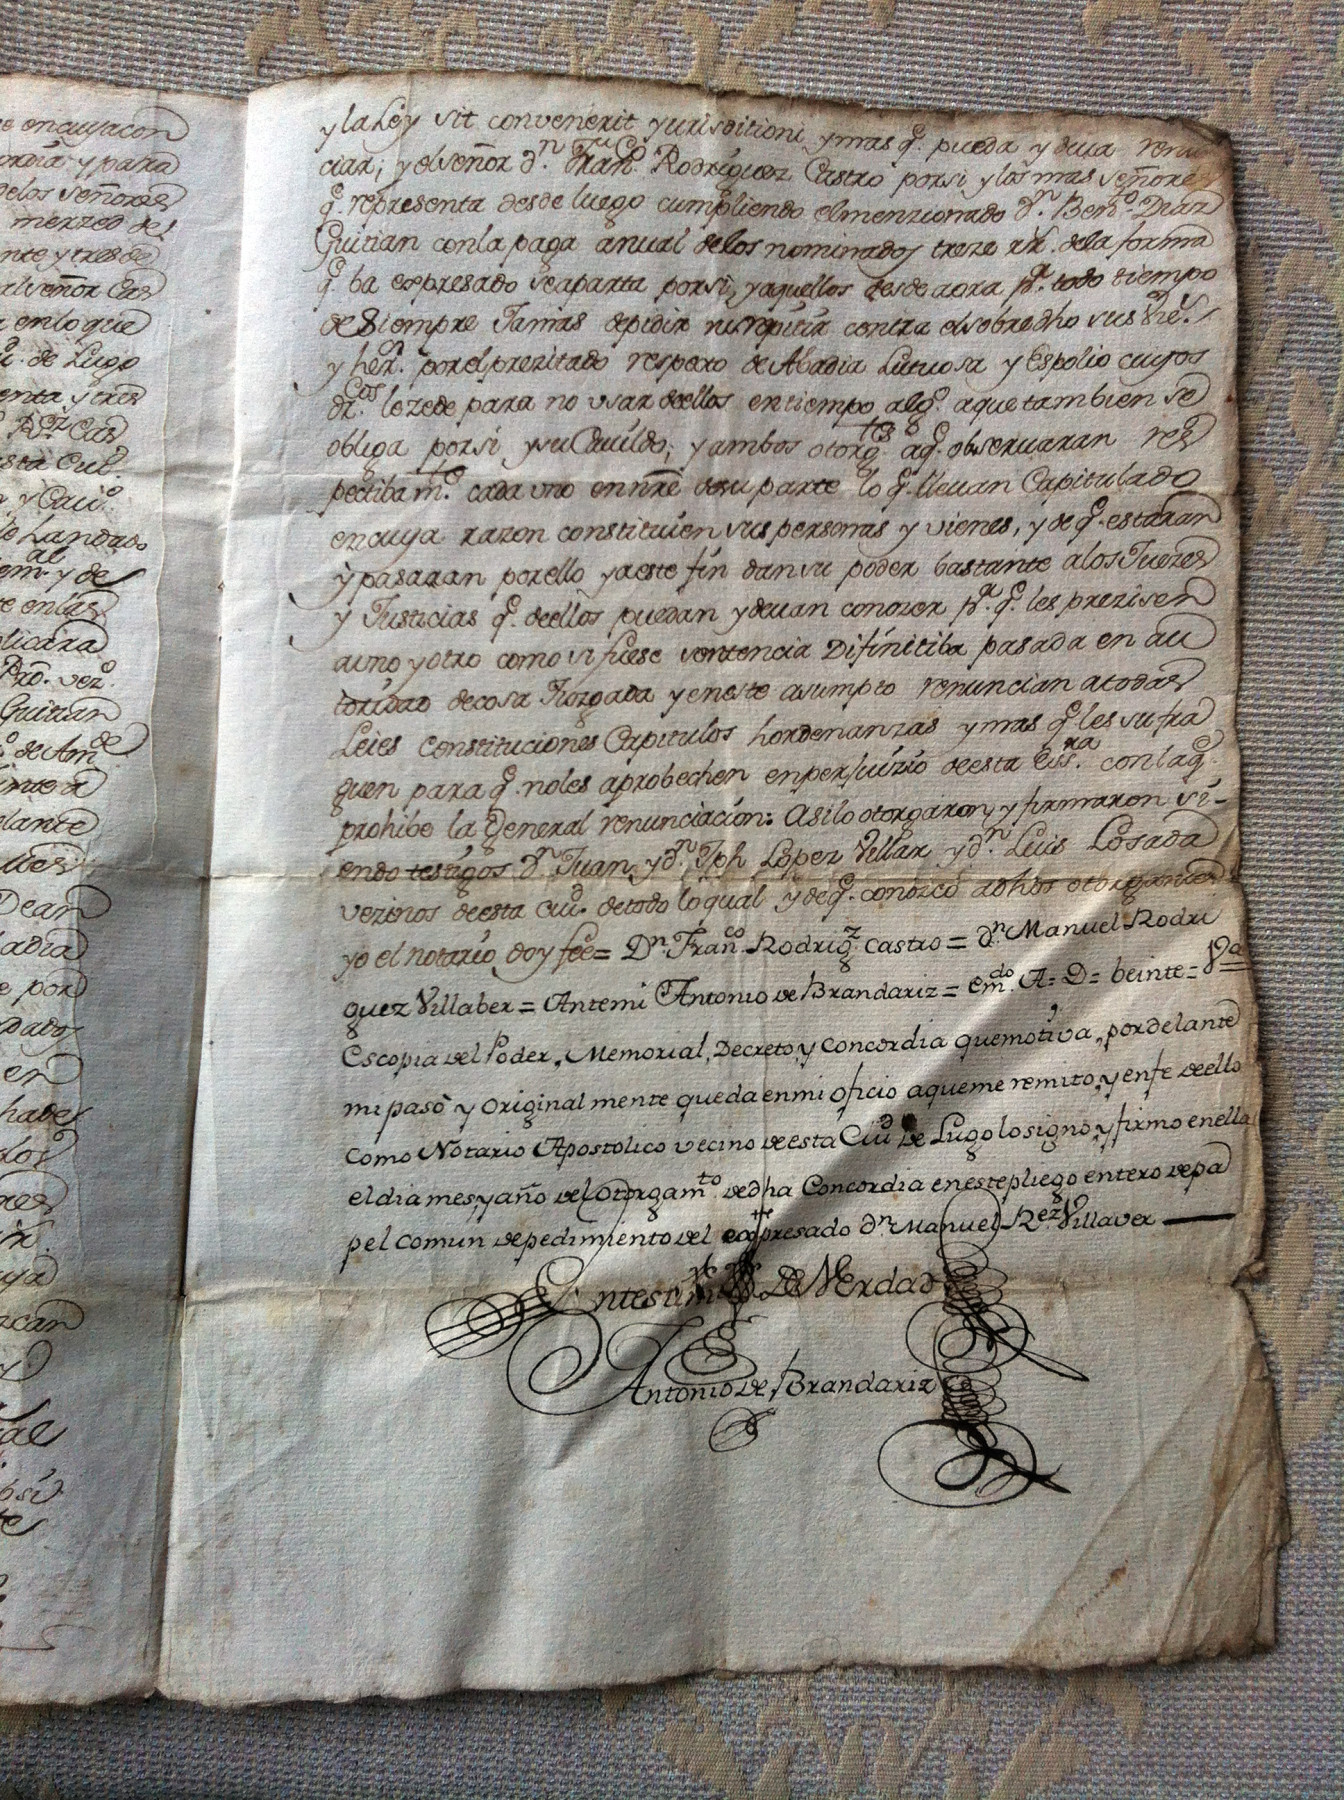 e encuyacon
ordia y para
delos señores
merzed de
nte y tres de
al señor Cas
a enlo que
de Lugo
enta y tres
Rz Cas
sta Ciu.
y Caui.º
de Landro.
em.al y de
te enlas
plicara
Prō. vez.º
Guitian
º de Am.de
lante
Dean
adia
e por
pados
en
hades
dos
res
uya
zcan
y
y la Ley sit convenerit yurisditioni y mas q.e pueda y deua renu
ciar; y el señor d.n Fran.co Rodriguez Castro porsi y los mas señores
q.e representa desde luego cumpliendo elmenzionado d.n Ben.to Diaz
Guitian conla paga anual delos nominados treze rx.s dela forma
q.e ba expresado se aparta porsi, yaquellos desde aora p.a todo tiempo
de Siempre Jamas depidir nirepitir contra elsobredho sus vie.s
y her.s porelprezitado respeto de Abadia Lutuosa y Espolio cuyos
dr.cos lezede para no vsar deellos entiempo alg.o aque tambien se
obliga porsi ysu Cauildo; y ambos otorg.tes aq.e obseruaran res
pectibam.te cada vno ennrē desu parte lo q.e lleuan Capitulado
encuya razon constituien sus personas y vienes, y de q.e estaran
y pasaran porello yaeste fin dansu poder bastante alos Juezes
y Justicias q.e deellos puedan ydeuan conozer p.a q.e les prezisen
auno yotro como si fuese sentencia Difinitiba pasada en au
toridad decosa Juzgada yeneste asumpto renuncian atodas
Leies Constituciones Capitulos hordenanzas y mas q.e les sufra
guen para q.e noles aprobechen enperjuizio deesta Ess.ra conlaq.e
prohibe la General renunciacion: Asilo otorgaron, y firmaron si-
endo testigos d.n Juan, y d.n Jph Lopez Villar y d.n Luis Losada
vezinos deesta Ciu.d detodo lo qual y deq.e conozco adhos otorgantes
yo el notario doy fee= D.n Fran.co Rodrig.z Castro= d.n Manuel Rodri
guez Villaber= Antemi Antonio de Brandariz= em.do A= D= beinte= Va
Es copia del Poder, Memorial, Decreto, y Concordia quemotiva, pordelante
mi pasò y Original mente queda enmi oficio aqueme remito, y enfe deello
como Notario Apostolico vecino deesta Ciu.d de Lugo lo signo, y firmo enella
el dia mes, y año del Otorgam.to dedha Concordia enestepliego entero depa
pel comun depedimiento del expresado d.n Manuel R.ez Villaver
En testim.o De Verdad
Antonio de Brandariz